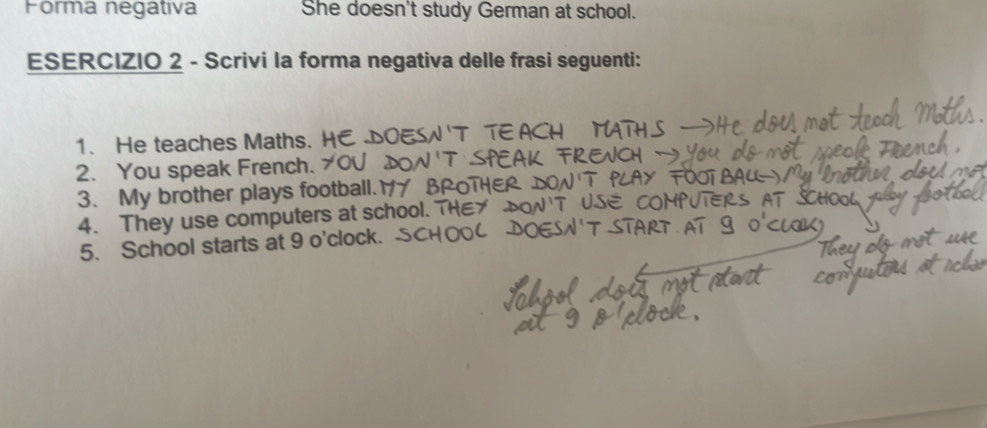 Forma negativa She doesn't study German at school.
ESERCIZIO 2 - Scrivi la forma negativa delle frasi seguenti:
1. He teaches Maths. HE DOESN'T TEACH MATHS → He does not teach Maths.
2. You speak French. YOU DON'T SPEAK FRENCH → You do not speak French.
3. My brother plays football. MY BROTHER DON'T PLAY FOOTBALL → My brother does not
play football
4. They use computers at school. THEY DON'T USE COMPUTERS AT SCHOOL
They do not use
computers at
5. School starts at 9 o'clock. SCHOOL DOESN'T START AT 9 O'CLOCK
School does not start
at 9 o'clock.